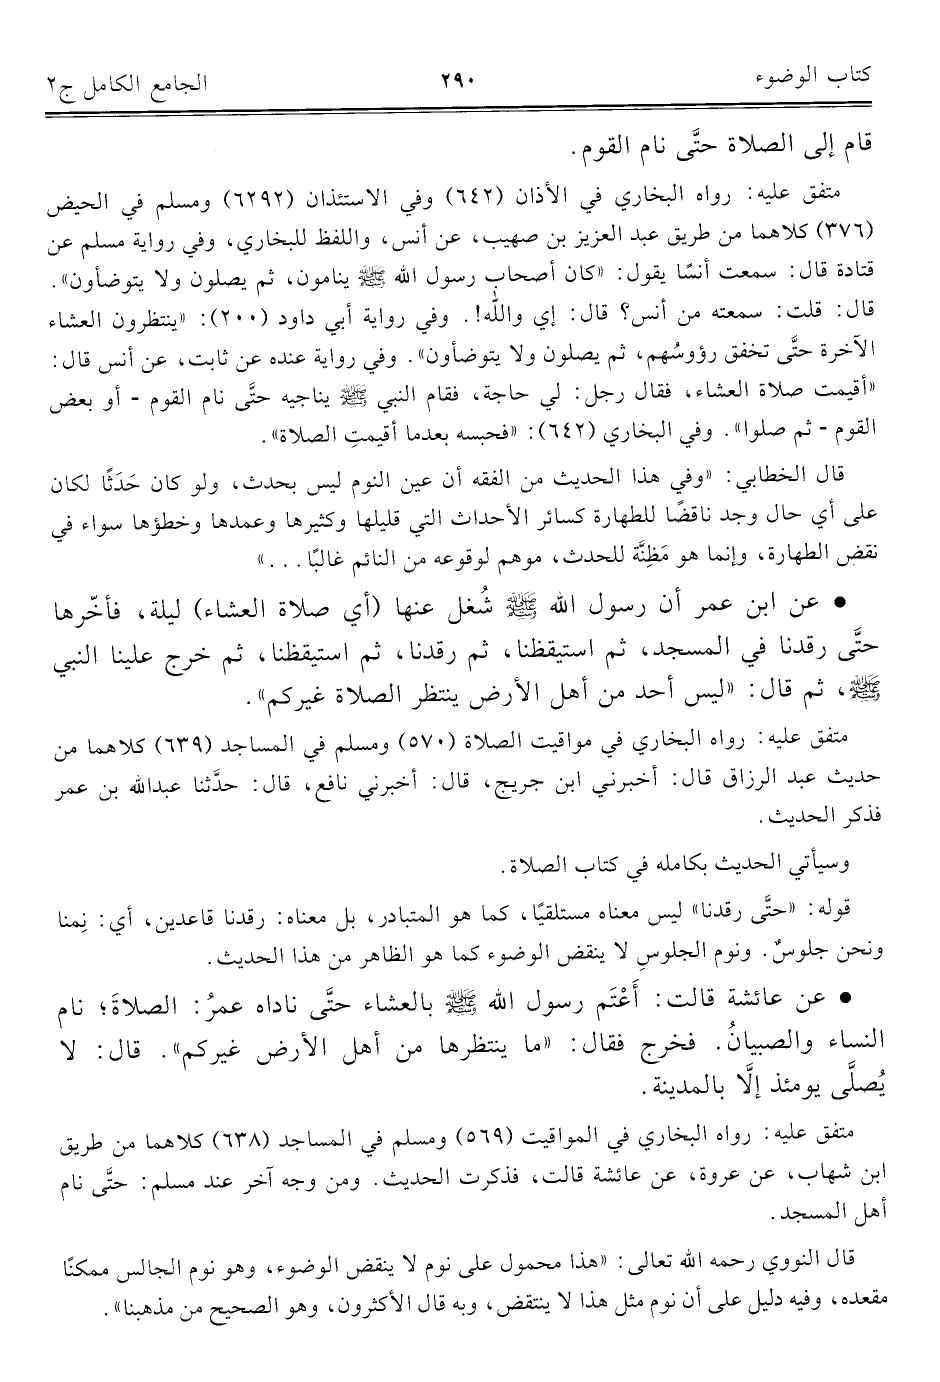 كتاب الوضوء ٢٩٠ الجامع الكامل ج٢
قام إلى الصلاة حتَّى نام القوم.
متفق عليه: رواه البخاري في الأذان (٦٤٢) وفي الاستئذان (٦٢٩٢) ومسلم في الحيض
(٣٧٦) كلاهما من طريق عبد العزيز بن صهيب، عن أنس، واللفظ للبخاري، وفي رواية مسلم عن
قتادة قال: سمعت أنسًا يقول: «كان أصحاب رسول الله ﷺ ينامون، ثم يصلون ولا يتوضأون».
قال: قلت: سمعته من أنس؟ قال: إي والله!. وفي رواية أبي داود (٢٠٠): «ينتظرون العشاء
الآخرة حتَّى تخفق رؤوسُهم، ثم يصلون ولا يتوضأون». وفي رواية عنده عن ثابت، عن أنس قال:
«أقيمت صلاة العشاء، فقال رجل: لي حاجة، فقام النبي ﷺ يناجيه حتَّى نام القوم - أو بعض
القوم - ثم صلوا». وفي البخاري (٦٤٢): «فحبسه بعدما أقيمتِ الصلاة».
قال الخطابي: «وفي هذا الحديث من الفقه أن عين النوم ليس بحدث، ولو كان حَدَثًا لكان
على أي حال وجد ناقضًا للطهارة كسائر الأحداث التي قليلها وكثيرها وعمدها وخطؤها سواء في
نقض الطهارة، وإنما هو مَظِنَّة للحدث، موهم لوقوعه من النائم غالبًا...»
• عن ابن عمر أن رسول الله ﷺ شُغل عنها (أي صلاة العشاء) ليلة، فأخّرها
حتَّى رقدنا في المسجد، ثم استيقظنا، ثم رقدنا، ثم استيقظنا، ثم خرج علينا النبي
ﷺ، ثم قال: «ليس أحد من أهل الأرض ينتظر الصلاة غيركم».
متفق عليه: رواه البخاري في مواقيت الصلاة (٥٧٠) ومسلم في المساجد (٦٣٩) كلاهما من
حديث عبد الرزاق قال: أخبرني ابن جريج، قال: أخبرني نافع، قال: حدَّثنا عبدالله بن عمر
فذكر الحديث.
وسيأتي الحديث بكامله في كتاب الصلاة.
قوله: «حتَّى رقدنا» ليس معناه مستلقيًا، كما هو المتبادر، بل معناه: رقدنا قاعدين، أي: نِمنا
ونحن جلوسٌ. ونوم الجلوسِ لا ينقض الوضوء كما هو الظاهر من هذا الحديث.
• عن عائشة قالت: أَعْتَم رسول الله ﷺ بالعشاء حتَّى ناداه عمرُ: الصلاةَ؛ نام
النساء والصبيانُ. فخرج فقال: «ما ينتظرها من أهل الأرض غيركم». قال: لا
يُصلَّى يومئذ إلَّا بالمدينة.
متفق عليه: رواه البخاري في المواقيت (٥٦٩) ومسلم في المساجد (٦٣٨) كلاهما من طريق
ابن شهاب، عن عروة، عن عائشة قالت، فذكرت الحديث. ومن وجه آخر عند مسلم: حتَّى نام
أهل المسجد.
قال النووي رحمه الله تعالى: «هذا محمول على نوم لا ينقض الوضوء، وهو نوم الجالس ممكنًا
مقعده، وفيه دليل على أن نوم مثل هذا لا ينتقض، وبه قال الأكثرون، وهو الصحيح من مذهبنا».